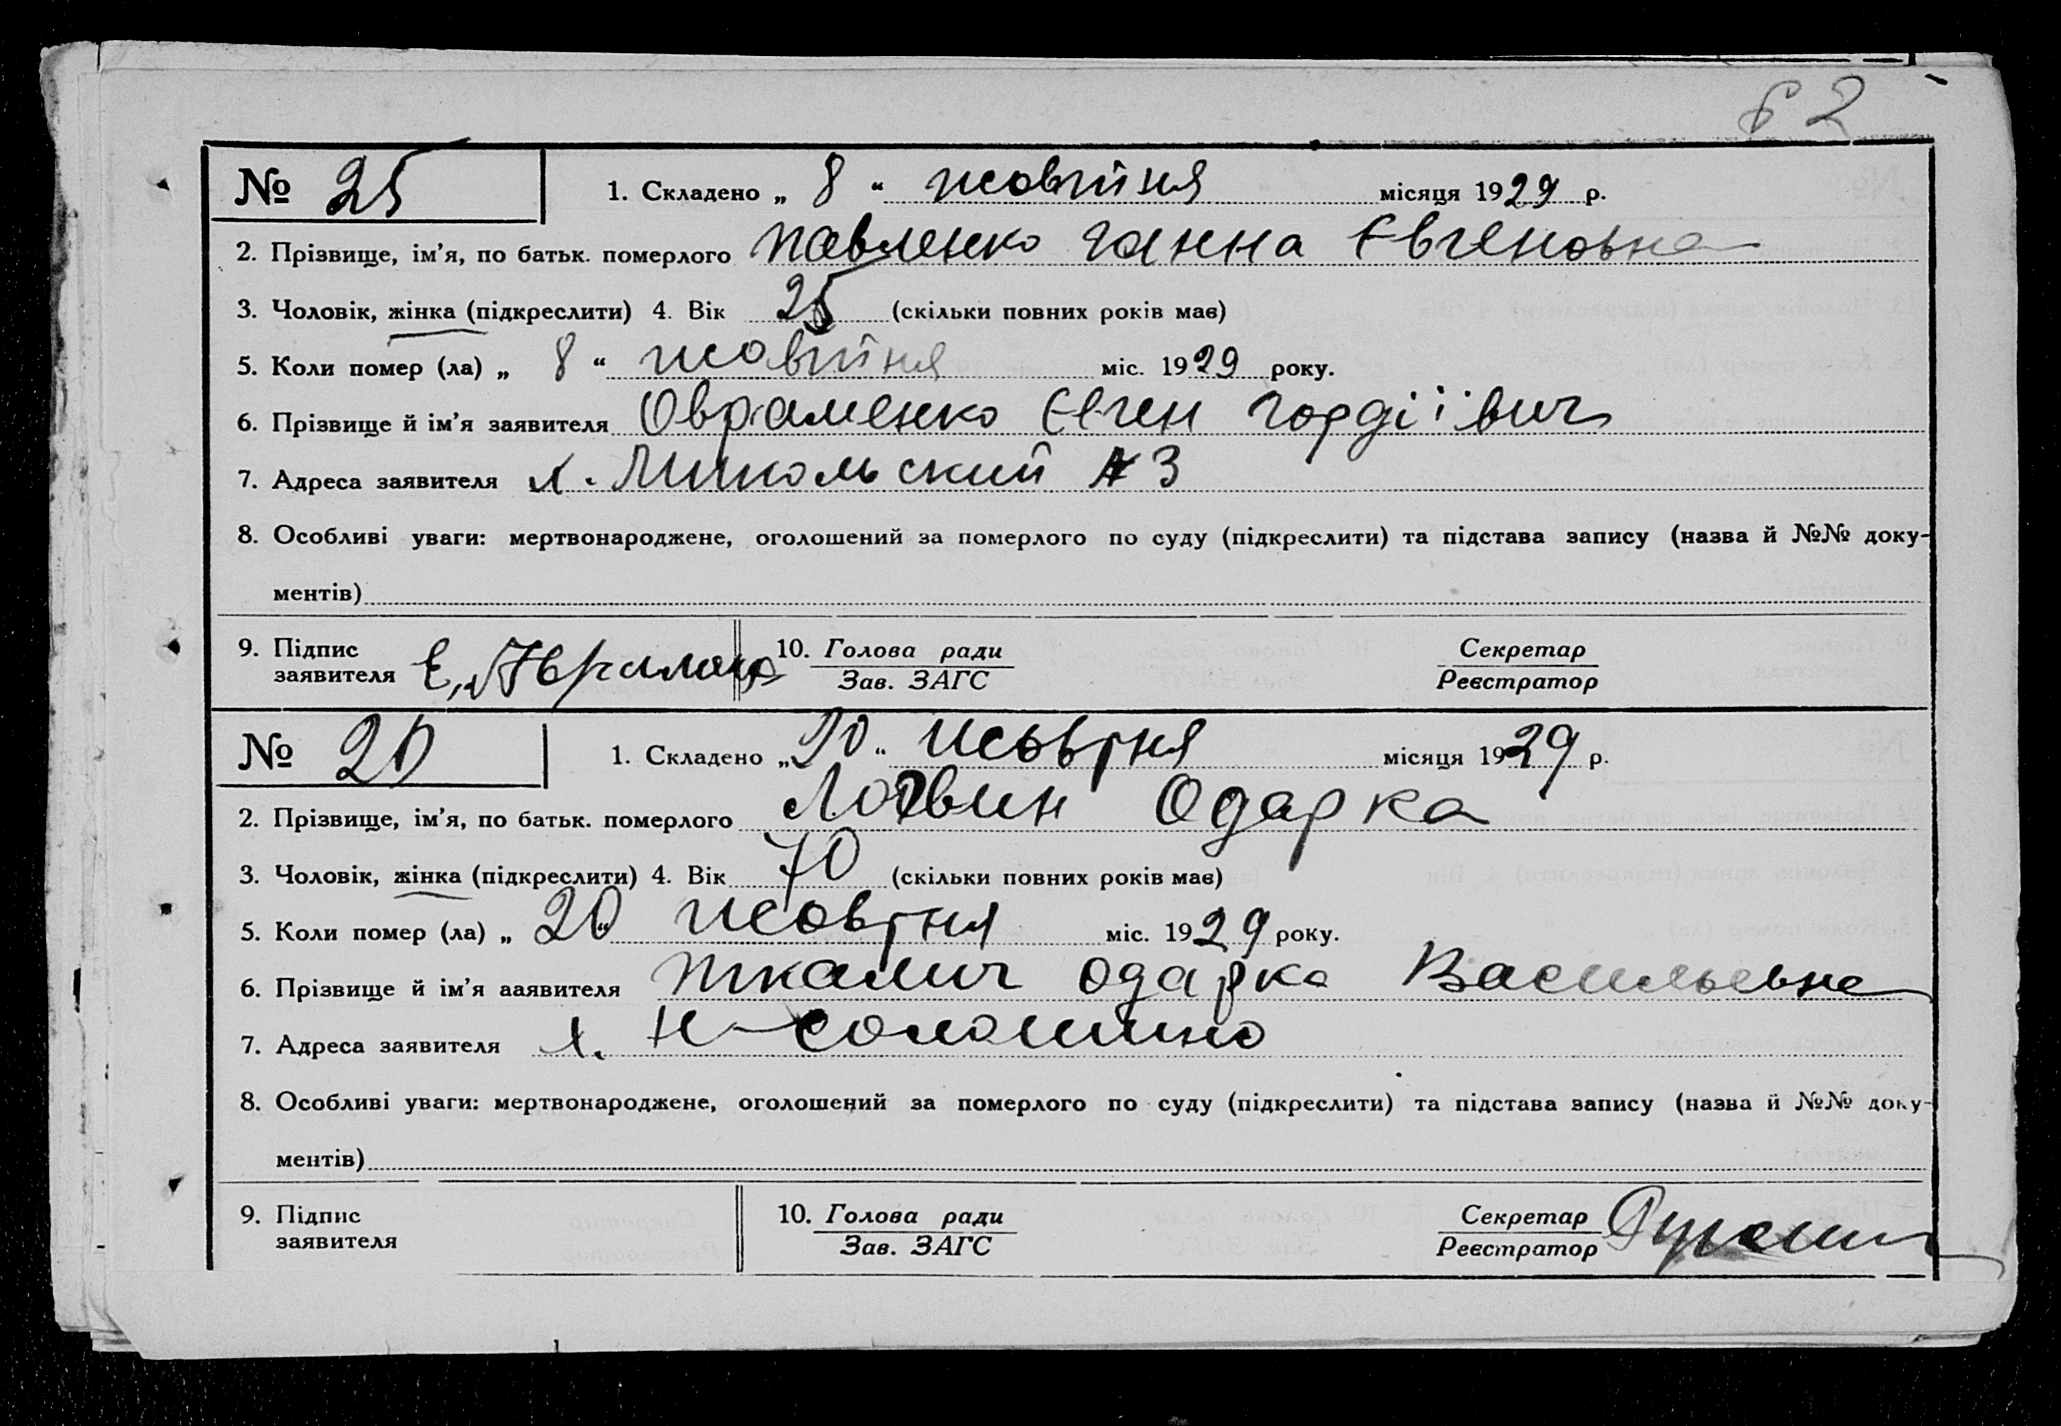 62
№ 25 1. Складено „ 8 “ жовтня місяця 1929 р.
2. Прізвище, ім’я, по батьк. померлого Павленко Ганна Євгеновна
3. Чоловік, жінка (підкреслити) 4. Вік 25 (скільки повних років має)
5. Коли помер (ла) „ 8 “ жовтня міс. 1929 року.
6. Прізвище й ім’я заявителя Овраменко Євген Гордіївич
7. Адреса заявителя х. Микольский № 3
8. Особливі уваги: мертвонароджене, оголошений за померлого по суду (підкреслити) та підстава запису (назва й №№ доку-
ментів)
9. Підпис заявителя Е. 10. Голова ради Зав. ЗАГС Секретар Реєстратор
№ 1. Складено „20“ жовтня місяця 1929 р.
2. Прізвище, ім’я, по батьк. померлого Логвин Одарка
3. Чоловік, жінка (підкреслити) 4. Вік 70 (скільки повних років має)
5. Коли помер (ла) „ 20 “ жовтня міс. 1929 року.
6. Прізвище й ім’я ааявителя Ткалич Одарка Васильевна
7. Адреса заявителя х. Н-Солошино
8. Особливі уваги: мертвонароджене, оголошений за померлого по суду (підкреслити) та підстава запису (назва й №№ доку-
ментів)
9. Підпис заявителя 10. Голова ради Зав. ЗАГС Секретар Реєстратор